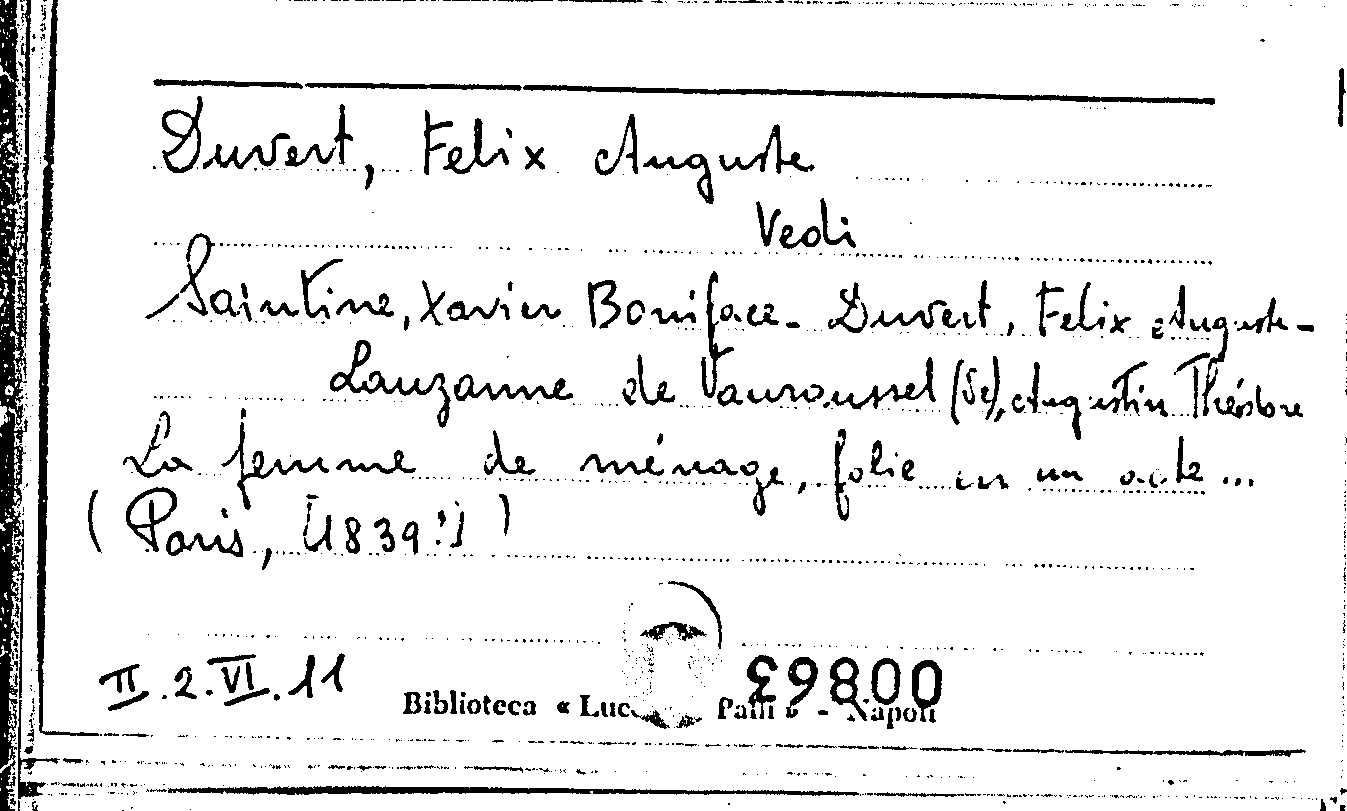 Duvert, Felix Auguste
Vedi
Saintine, Xavier Boniface - Duvert, Felix Auguste -
Lauzanne de Vauroussel (de), Augustin Théodore
La femme de ménage, folie en un acte...
(Paris, [1839?])
II.2.VI.11
00863
Biblioteca « Luc Palli » - Napoli